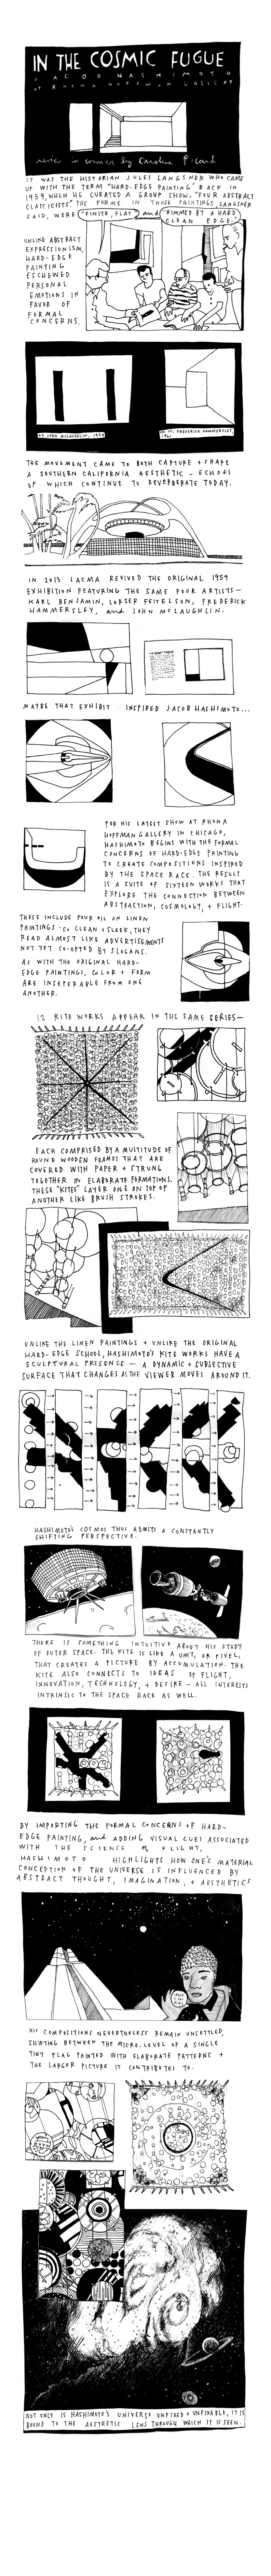 IN THE COSMIC FUGUE
JACOB HASHIMOTO
at RHONA HOFFMAN GALLERY
review in comics by Caroline Picard
IT WAS THE HISTORIAN JULES LANGSNER WHO CAME
UP WITH THE TERM "HARD-EDGE PAINTING" BACK IN
1959, WHEN HE CURATED A GROUP SHOW, "FOUR ABSTRACT
CLASSICISTS". THE FORMS IN THOSE PAINTINGS, LANGSNER
SAID, WERE "FINITE, FLAT" and "RIMMED BY A HARD
CLEAN EDGE."
UNLIKE ABSTRACT
EXPRESSIONISM,
HARD-EDGE
PAINTING
ESCHEWED
PERSONAL
EMOTIONS IN
FAVOR OF
FORMAL
CONCERNS.
JOHN MCLAUGHLIN, 1974
FREDERICK HAMMERSLEY,
1961
THE MOVEMENT CAME TO BOTH CAPTURE + SHAPE
A SOUTHERN CALIFORNIA AESTHETIC - ECHOES
OF WHICH CONTINUE TO REVERBERATE TODAY.
IN 2013 LACMA REVIVED THE ORIGINAL 1959
EXHIBITION FEATURING THE SAME FOUR ARTISTS-
KARL BENJAMIN, LORSER FEITELSON, FREDERICK
HAMMERSLEY, and JOHN MCLAUGHLIN.
MAYBE THAT EXHIBIT INSPIRED JACOB HASHIMOTO...
FOR HIS LATEST SHOW AT RHONA
HOFFMAN GALLERY IN CHICAGO,
HASHIMOTO BEGINS WITH THE FORMAL
CONCERNS OF HARD-EDGE PAINTING
TO CREATE COMPOSITIONS INSPIRED
BY THE SPACE RACE. THE RESULT
IS A SUITE OF SIXTEEN WORKS THAT
EXPLORE THE CONNECTION BETWEEN
ABSTRACTION, COSMOLOGY, + FLIGHT.
THESE INCLUDE FOUR OIL ON LINEN
PAINTINGS SO CLEAN + SLEEK, THEY
READ ALMOST LIKE ADVERTISEMENTS
NOT YET CO-OPTED BY SLOGANS.
AS WITH THE ORIGINAL HARD-
EDGE PAINTINGS, COLOR + FORM
ARE INSEPERABLE FROM ONE
ANOTHER.
12 KITE WORKS APPEAR IN THE SAME SERIES-
EACH COMPRISED BY A MULTITUDE OF
ROUND WOODEN FRAMES THAT ARE
COVERED WITH PAPER + STRUNG
TOGETHER IN ELABORATE FORMATIONS.
THESE "KITES" LAYER ONE ON TOP OF
ANOTHER LIKE BRUSH STROKES.
UNLIKE THE LINEN PAINTINGS + UNLIKE THE ORIGINAL
HARD-EDGE SCHOOL, HASHIMOTO'S KITE WORKS HAVE A
SCULPTURAL PRESENCE - A DYNAMIC + SUBJECTIVE
SURFACE THAT CHANGES AS THE VIEWER MOVES AROUND IT.
HASHIMOTO'S COSMOS THUS ADMITS A CONSTANTLY
SHIFTING PERSPECTIVE.
THERE IS SOMETHING INTUITIVE ABOUT HIS STUDY
OF OUTER SPACE. THE KITE IS LIKE A UNIT, OR PIXEL,
THAT CREATES A PICTURE BY ACCUMULATION. THE
KITE ALSO CONNECTS TO IDEAS OF FLIGHT,
INNOVATION, TECHNOLOGY, + DESIRE - ALL INTERESTS
INTRINSIC TO THE SPACE RACE AS WELL.
BY IMPORTING THE FORMAL CONCERNS OF HARD-
EDGE PAINTING, and ADDING VISUAL CUES ASSOCIATED
WITH THE SCIENCE of FLIGHT,
HASHIMOTO HIGHLIGHTS HOW ONE'S MATERIAL
CONCEPTION OF THE UNIVERSE IS INFLUENCED BY
ABSTRACT THOUGHT, IMAGINATION, + AESTHETICS
HIS COMPOSITIONS NEVERTHELESS REMAIN UNSETTLED,
SHIFTING BETWEEN THE MICRO-LEVEL OF A SINGLE
TINY FLAG PAINTED WITH ELABORATE PATTERNS +
THE LARGER PICTURE IT CONTRIBUTES TO.
NOT ONLY IS HASHIMOTO'S UNIVERSE UNFIXED + UNFIXABLE, IT IS
BOUND TO THE AESTHETIC LENS THROUGH WHICH IT IS SEEN.